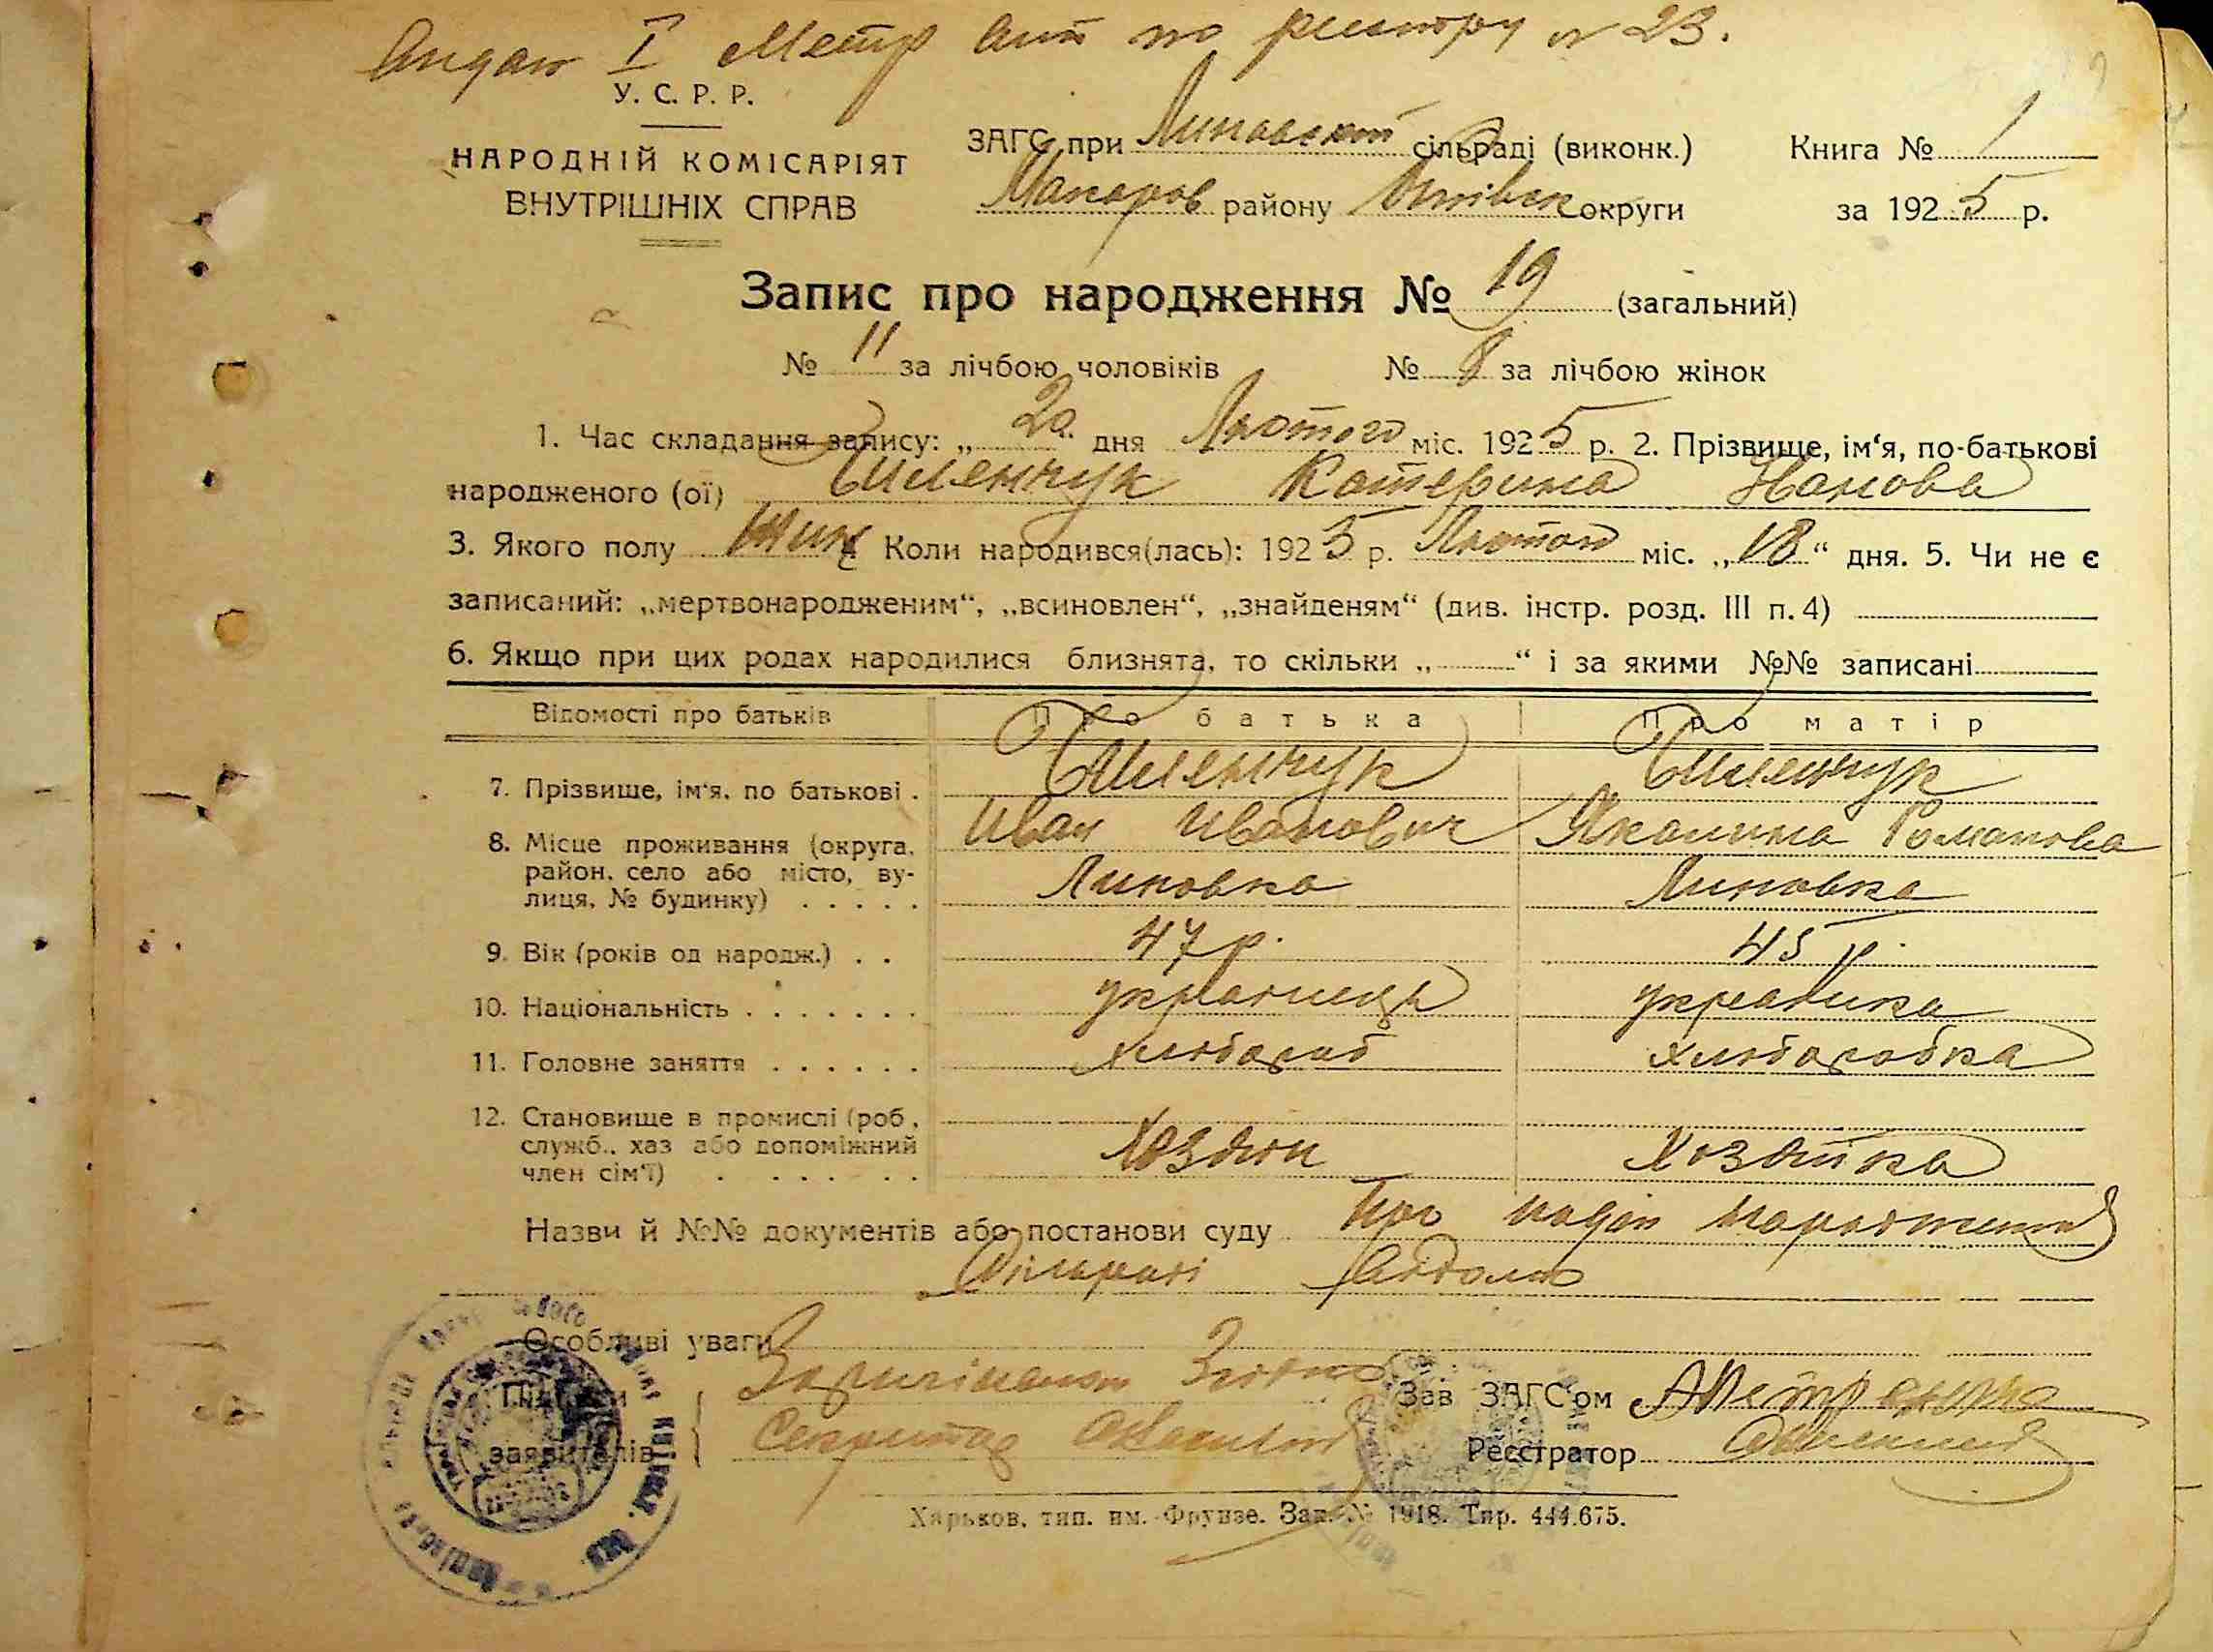 Видан I Метр Акт по реестру № 23.
У. С. Р. Р.
НАРОДНІЙ КОМІСАРІЯТ
ВНУТРІШНІХ СПРАВ
ЗАГС при Липовскій сільраді (виконк.)
Макаров району Київск округи
Книга № 1
за 1925 р.
Запис про народження № 19 (загальний)
№ 11 за лічбою чоловіків № 8 за лічбою жінок
1. Час складання запису: „ 20 " дня Лютого міс. 1925 р. 2. Прізвище, ім‘я, по-батькові
народженого (ої) Катерина Иванова
3. Якого полу жин 4 Коли народився(лась): 1925 р. Лютого міс. „18“ дня. 5. Чи не є
записаний: „мертвонародженим“, „всиновлен“, „знайденям“ (див. інстр. розд. III п. 4)
6. Якщо при цих родах народилися близнята, то скільки „ “ і за якими №№ записані
Відомості про батьків Про батька Про матір
7. Прізвище, ім‘я, по батькові .
Иван Иванович Якилина Романова
8. Місце проживання (округа,
район, село або місто, ву-
лиця, № будинку) . . . . . Липовка Липовка
9. Вік (років од народж.) . . 47 р. 45 р.
10. Національність . . . . . . . украинець украинка
11. Головне заняття . . . . . . хлібороб хлібаробка
12. Становище в промислі (роб,
служб., хаз або допоміжний
член сім‘ї) . . . . . . Хозяин Хозяйка
Назви й №№ документів або постанови суду Про подію народження
Особливі уваги
Підписи
заявителів
Секритар
Зав ЗАГС‘ом
Реєстратор
Харьков, тип. им. Фрунзе. Зак. № 1918. Тир. 444.675.